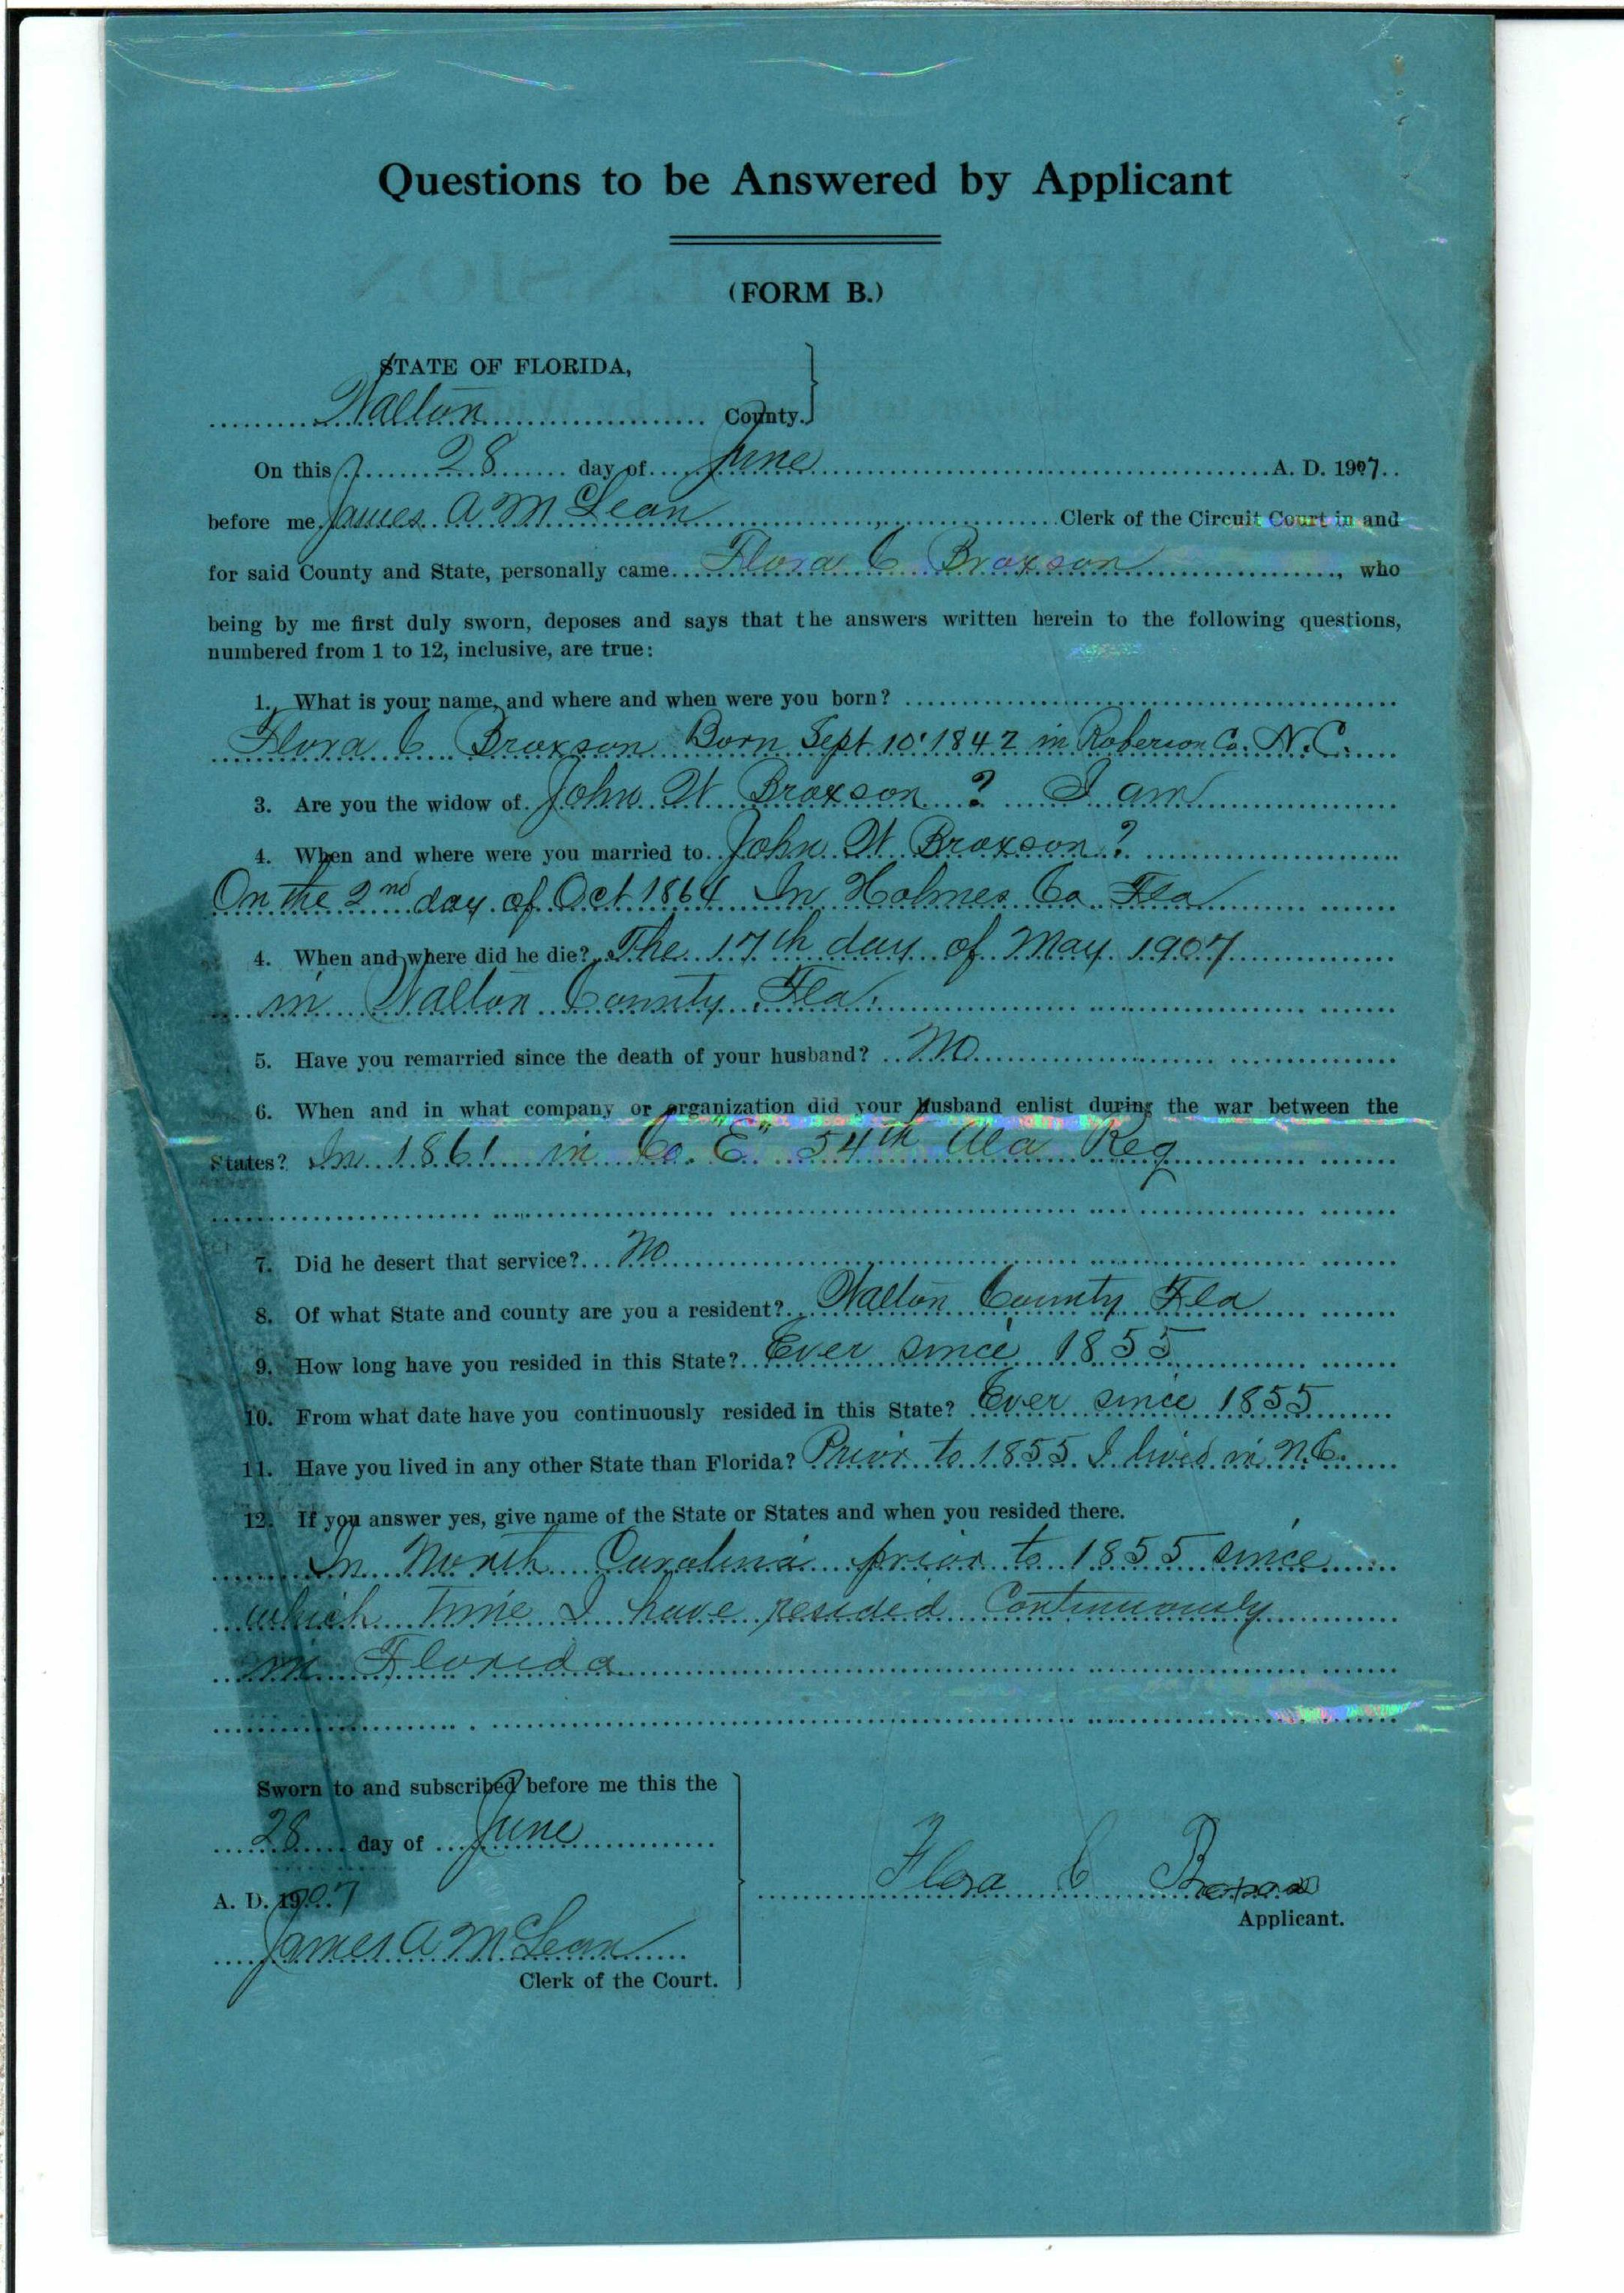 Questions to be Answered by Applicant
(FORM B.)
STATE OF FLORIDA,
Walton County.
On this 28 day of June A. D. 1907
before me James A McLean Clerk of the Circuit Court in and
for said County and State, personally came Flora C Broxson, who
being by me first duly sworn, deposes and says that the answers written herein to the following questions,
numbered from 1 to 12, inclusive, are true:
1. What is your name, and where and when were you born?
Flora C Broxson Born Sept 10 1842 in Roberson Co. N.C.
3. Are you the widow of John W Broxson? I am
4. When and where were you married to John W Broxson?
On the 2nd day of Oct 1864 In Holmes Co Fla
4. When and where did he die? The 17th day of May 1907
in Walton County Fla.
5. Have you remarried since the death of your husband? No
6. When and in what company or organization did your husband enlist during the war between the
States? In 1861 in Co "E" 54th Ala Reg
7. Did he desert that service? No
8. Of what State and county are you a resident? Walton County Fla
9. How long have you resided in this State? Ever since 1855
10. From what date have you continuously resided in this State? Ever since 1855
11. Have you lived in any other State than Florida? Prior to 1855 I lived in N.C.
12. If you answer yes, give name of the State or States and when you resided there.
In North Carolina prior to 1855 since
which time I have resided Continuously
in Florida
Sworn to and subscribed before me this the
28 day of June
A. D. 1907
James A McLean
Clerk of the Court.
Flora C Broxson
Applicant.